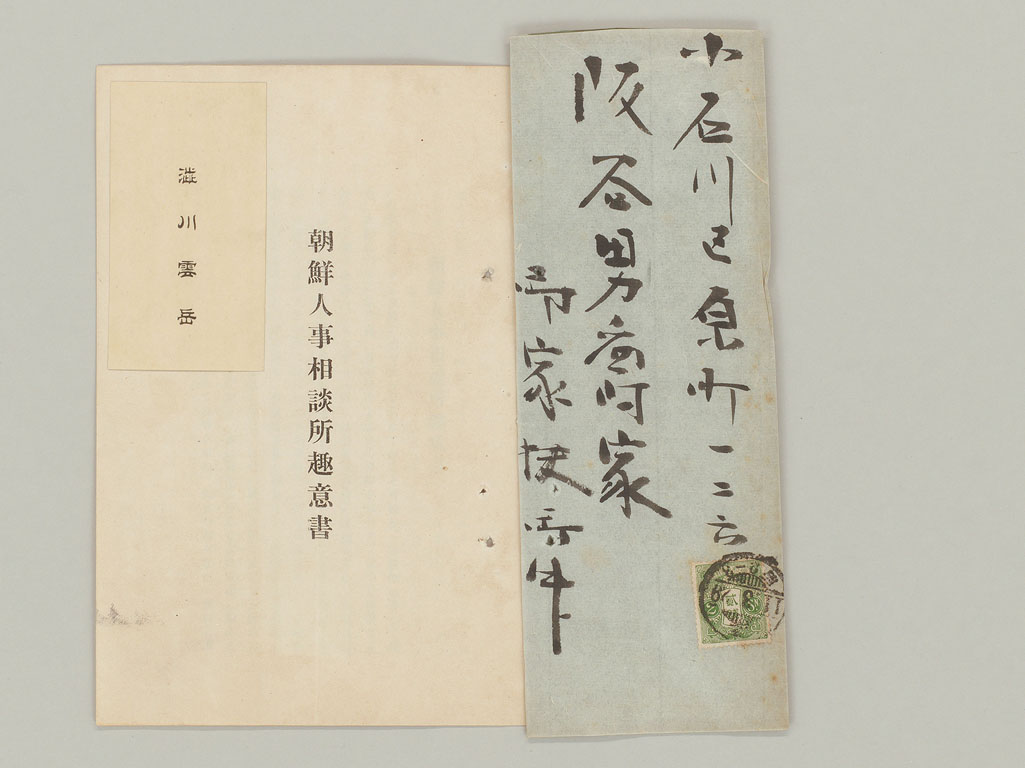 小石川区原町一二六
阪谷男爵家
御家扶御中
朝鮮人事相談所趣意書
澁川雲岳